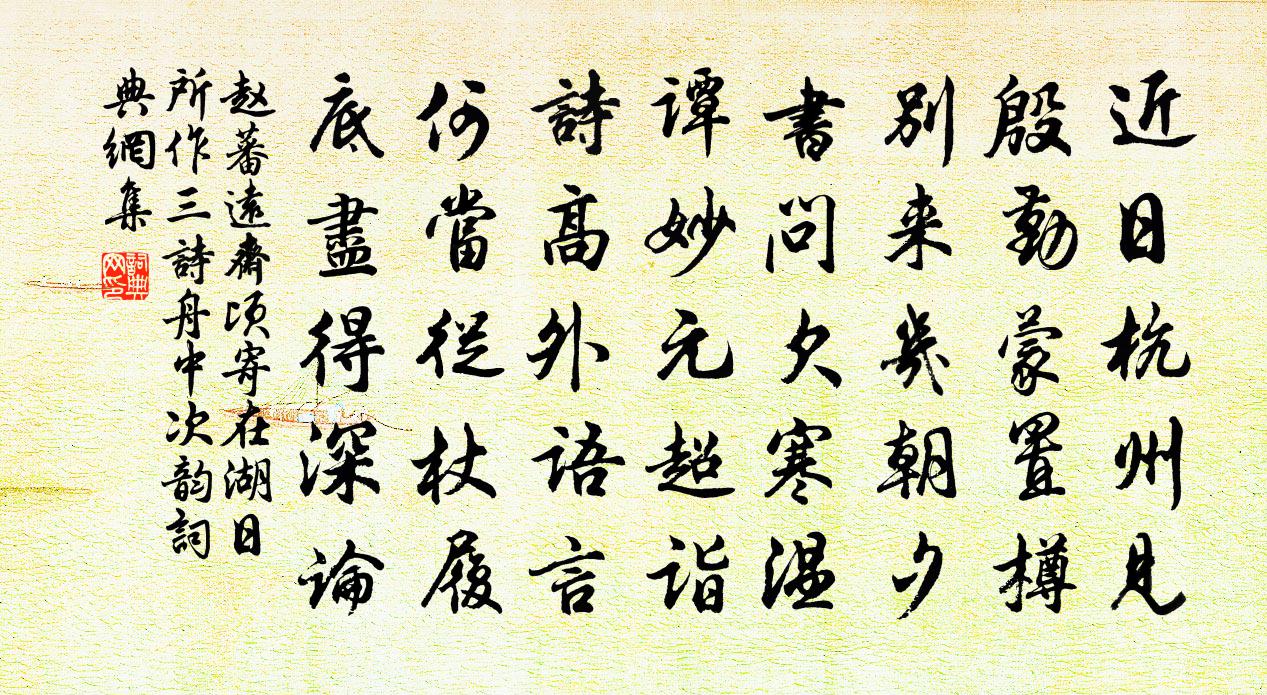 近日杭州見
殷勤蒙置樽
別来幾朝夕
書問欠寒温
譚妙元超詣
詩高外語言
何當從杖履
底盡得深論
赵蕃遠齋頃寄在湖日
所作三詩舟中次韵詞
典網集
詞典网印